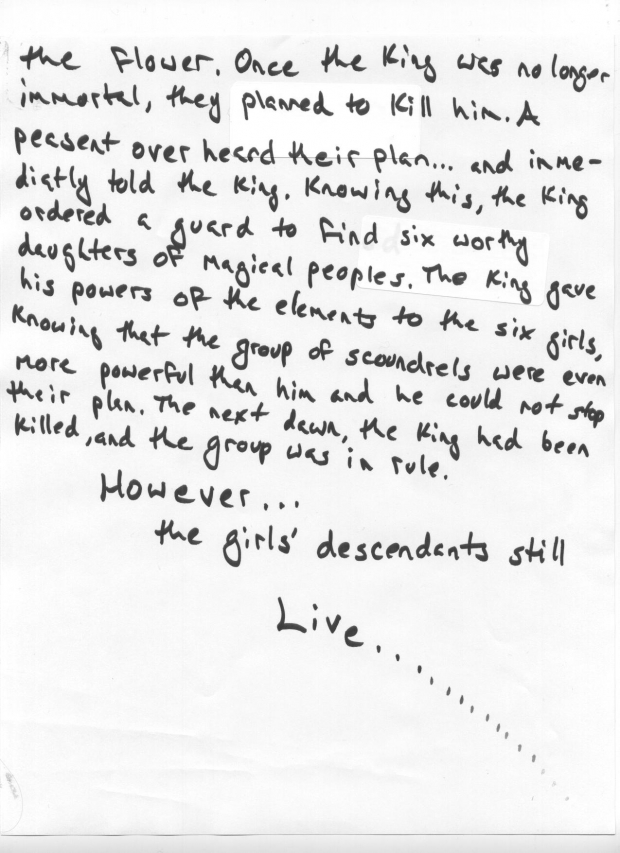 the Flower. Once the King was no longer
immortal, they planned to kill him. A
peasent over heard their plan... and imme-
diatly told the King. Knowing this, the King
ordered a guard to find six worthy
daughters of magical peoples. The King gave
his powers of the elements to the six girls,
Knowing that the group of scoundrels were even
more powerful than him and he could not stop
their plan. The next dawn, the King had been
killed, and the group was in rule.
However...
the girls' descendants still
Live..................